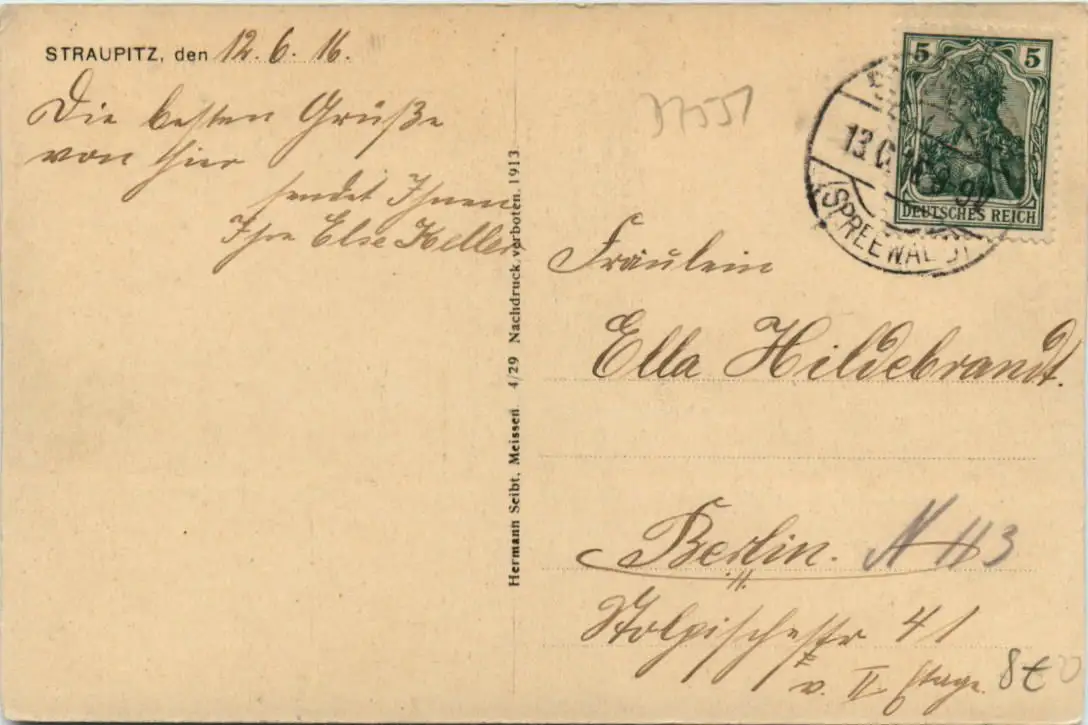 STRAUPITZ, den 12.6.16.
Die besten Grüße
von hier
sendet Ihnen
Ihre Else Keller
37551
Hermann Seibt, Meissen 4/29 Nachdruck verboten. 1913
5 5
DEUTSCHES REICH
13.6.16
(SPREEWALD)
Fräulein
Ella Hildebrandt.
Berlin. N 113
Stolpischestr 41
v. II Etage
8€